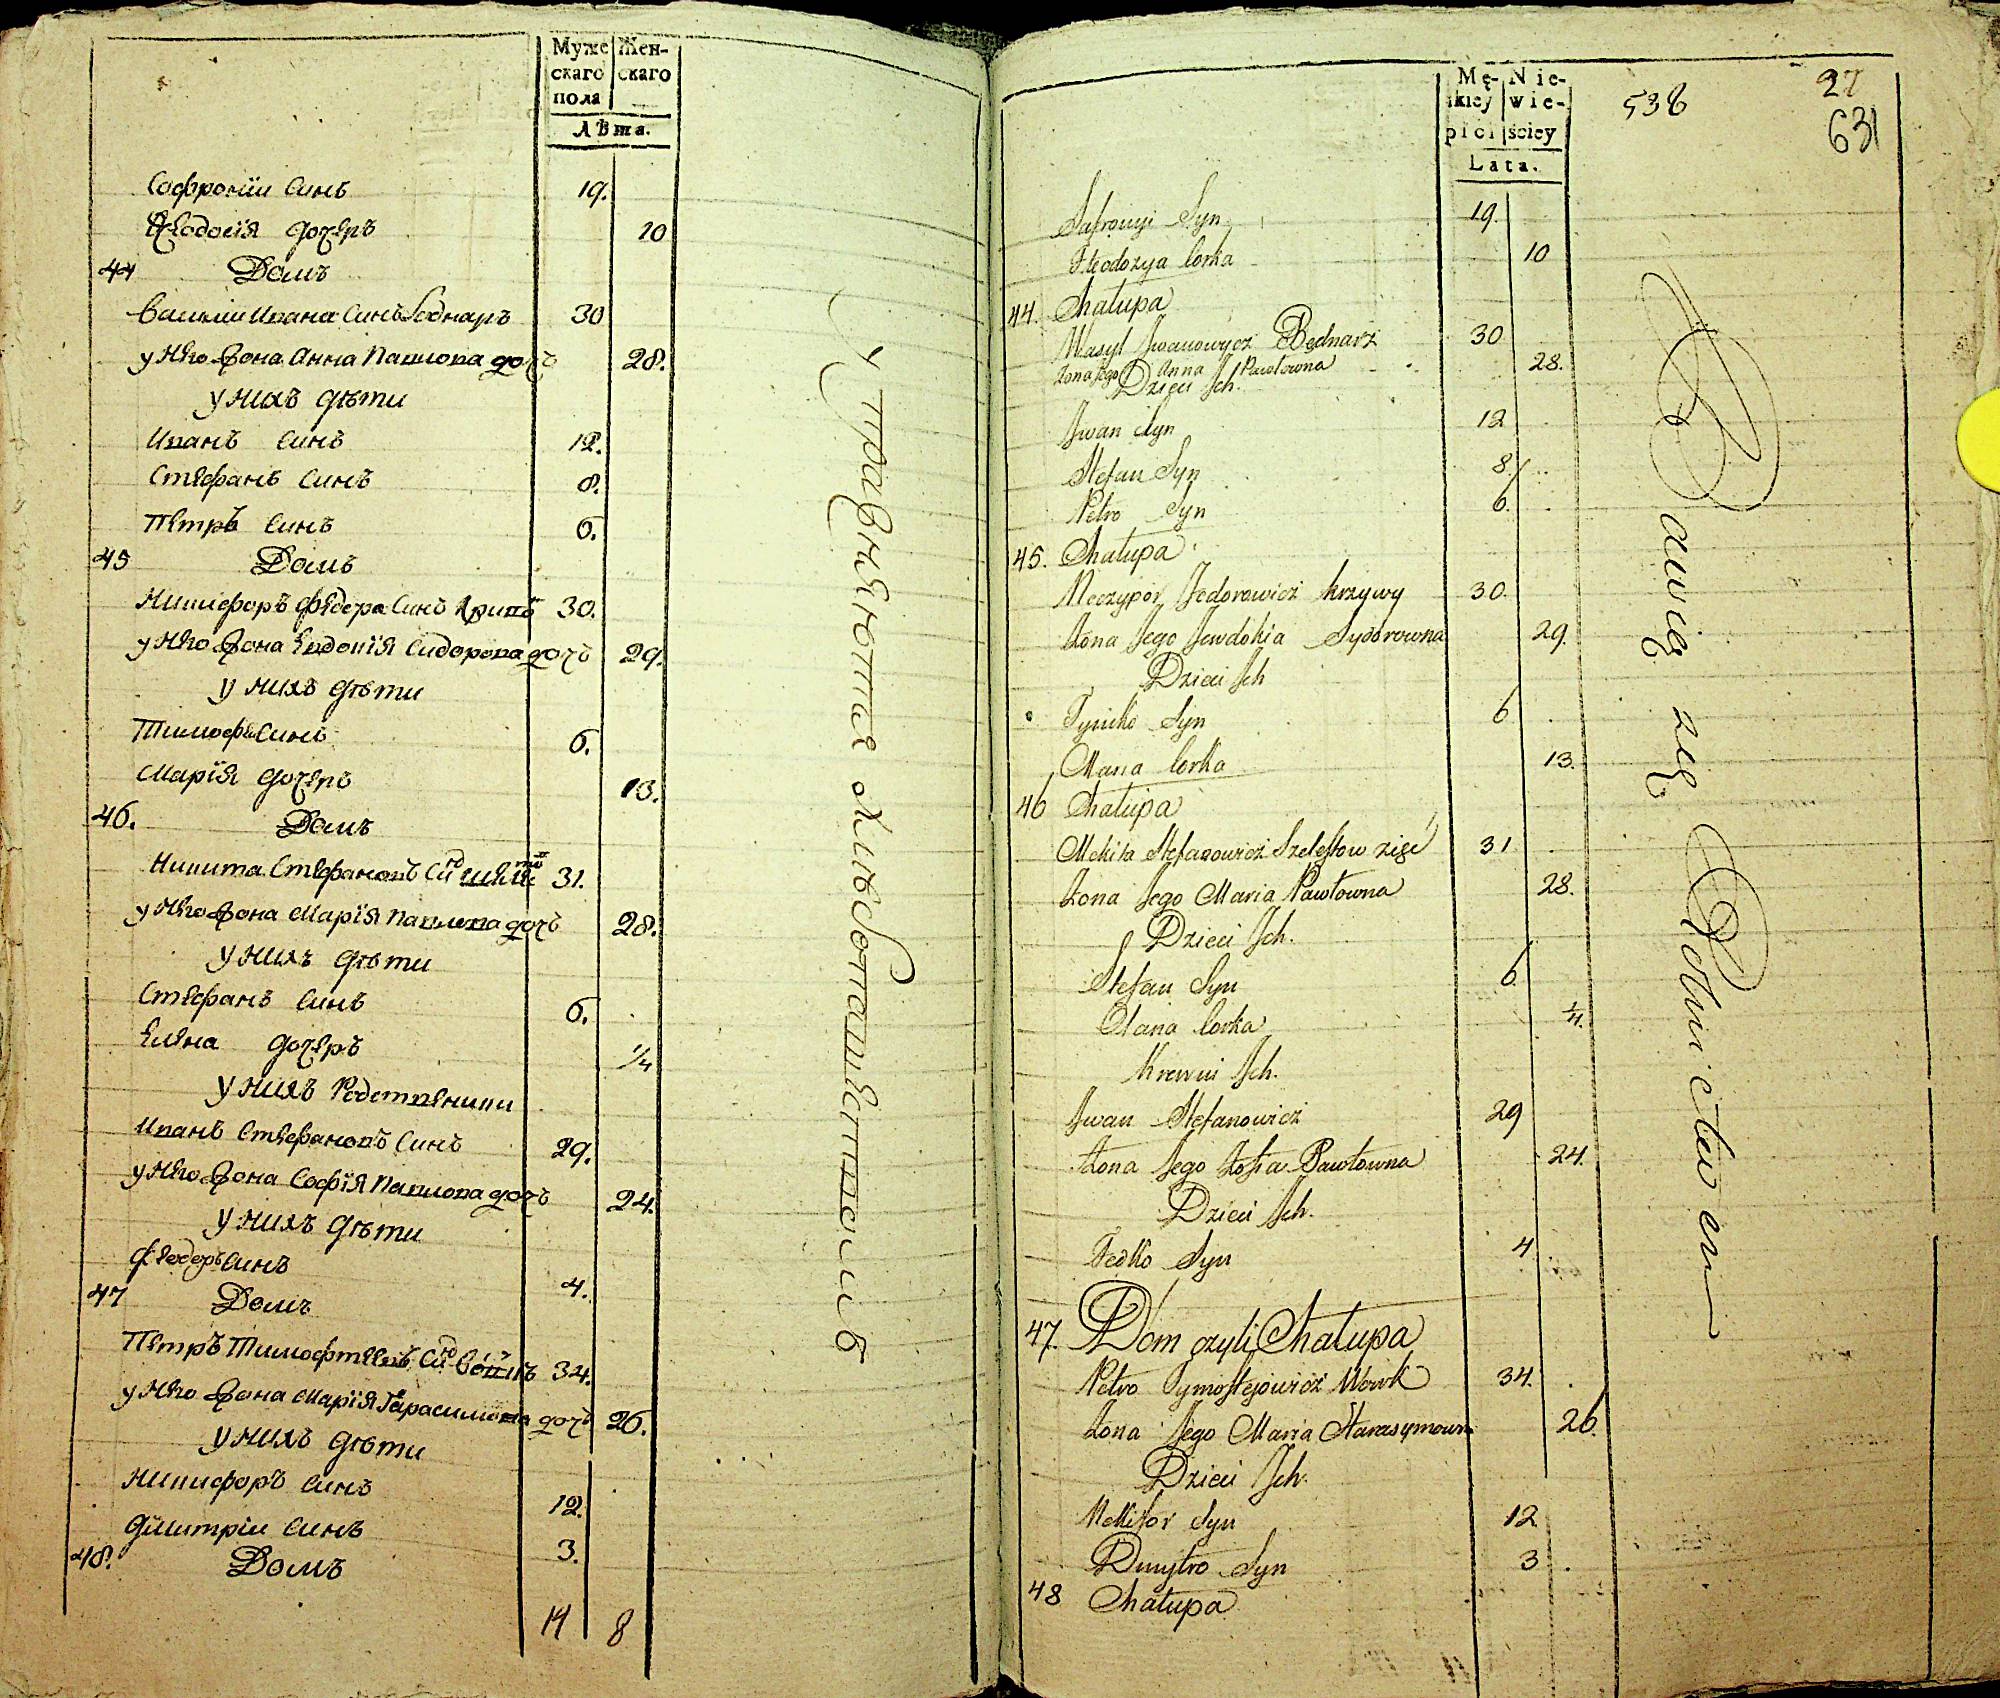 Муже Жен-
скаго скаго
пола
Лѣта.
Софронїи синъ 19.
Феодосїя дочеръ 10
44 Домъ
Василии Ивана синъ Боднаръ 30
у него жона Анна Павлова дочъ 28.
у нихъ дѣти
Иванъ синъ 12.
Стефанъ синъ 8.
Петръ синъ 6.
45 Домъ
Никифоръ Федора синъ Кривъ 30.
у него жона Евдокїя Сидорова дочъ 29.
у нихъ дѣти
Тимофѣ синъ 6.
Марїя дочеръ 13.
46. Домъ
Никита Стефановъ 31.
у него жона Марїя Павлова дочъ 28.
у нихъ дѣти
Стефанъ синъ 6.
Елена дочеръ 1/4
у нихъ Родственики
Иванъ Стефановъ синъ 29.
у него жона Софїя Павлова дочъ 24.
у нихъ дѣти
Феодоръ синъ 4.
47 Домъ
Петръ Тимофтеевъ 34.
у него жона Марїя Гарасимова дочъ 26.
у нихъ дѣти
Никифоръ синъ 12.
Дмитрїи синъ 3.
48. Домъ
14 8
Упражняются хлѣбопашествомъ
Mę- Nie-
skiey wie-
płci ściey
Lata.
538
27
631
Safronyi Syn 19.
Fteodozya Corka 10
44. Chałupa
Wasyl Jwanowycz Bednarz 30
Zona Jego Anna Pawłowna 28.
Dzieci Jch.
Jwan Syn 12
Stefan Syn 8.
Petro Syn 6.
45. Chałupa
Neczypor Fedorowicz Krzywy 30.
Zona Jego Jewdokia Sydorowna 29.
Dzieci Jch
Tymko Syn 6
Maria Corka 13.
46 Chałupa
Mekita Stefanowicz Szelestow zięć 31
Zona Jego Maria Pawłowna 28.
Dzieci Jch.
Stefan Syn 6.
Olana Corka 1/4.
Krewni Jch.
Jwan Stefanowicz 29
Zona Jego Zofia Pawłowna 24.
Dzieci Jch.
Fedko Syn 4
47. Dom czyli Chałupa
Petro Tymoftejowicz Wowk 34.
Zona Jego Maria Harasymown 26.
Dzieci Jch.
Nekifor Syn 12
Dmytro Syn 3
48 Chałupa
Bawią się Rolnictwem